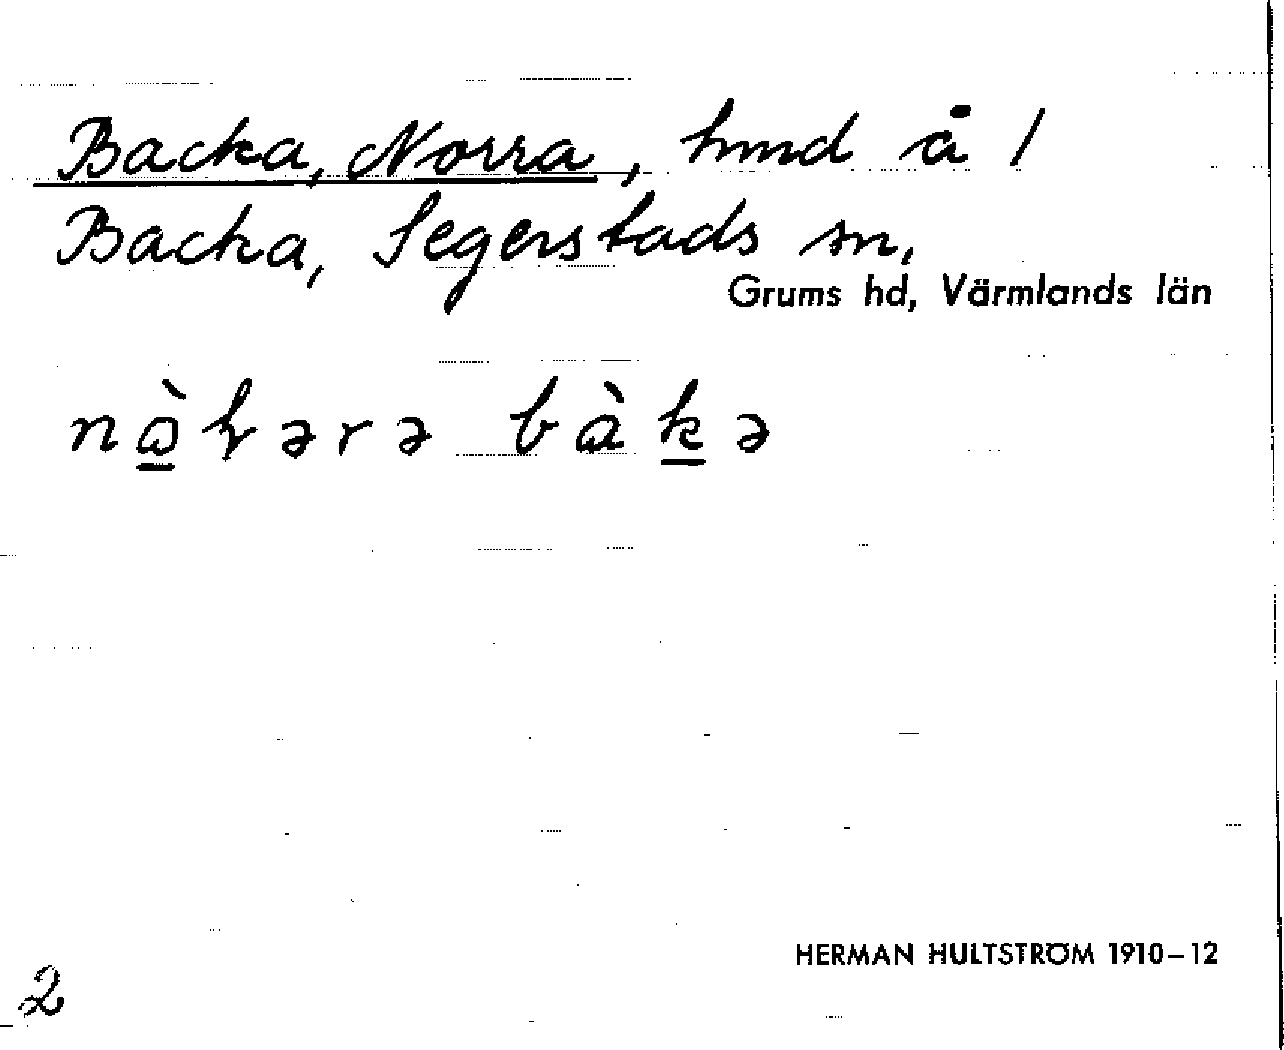 Backa, Norra, hmd å /
Backa, Segerstads sn,
Grums hd, Värmlands län
bàk̲ə
HERMAN HULTSTRÖM 1910–12
2